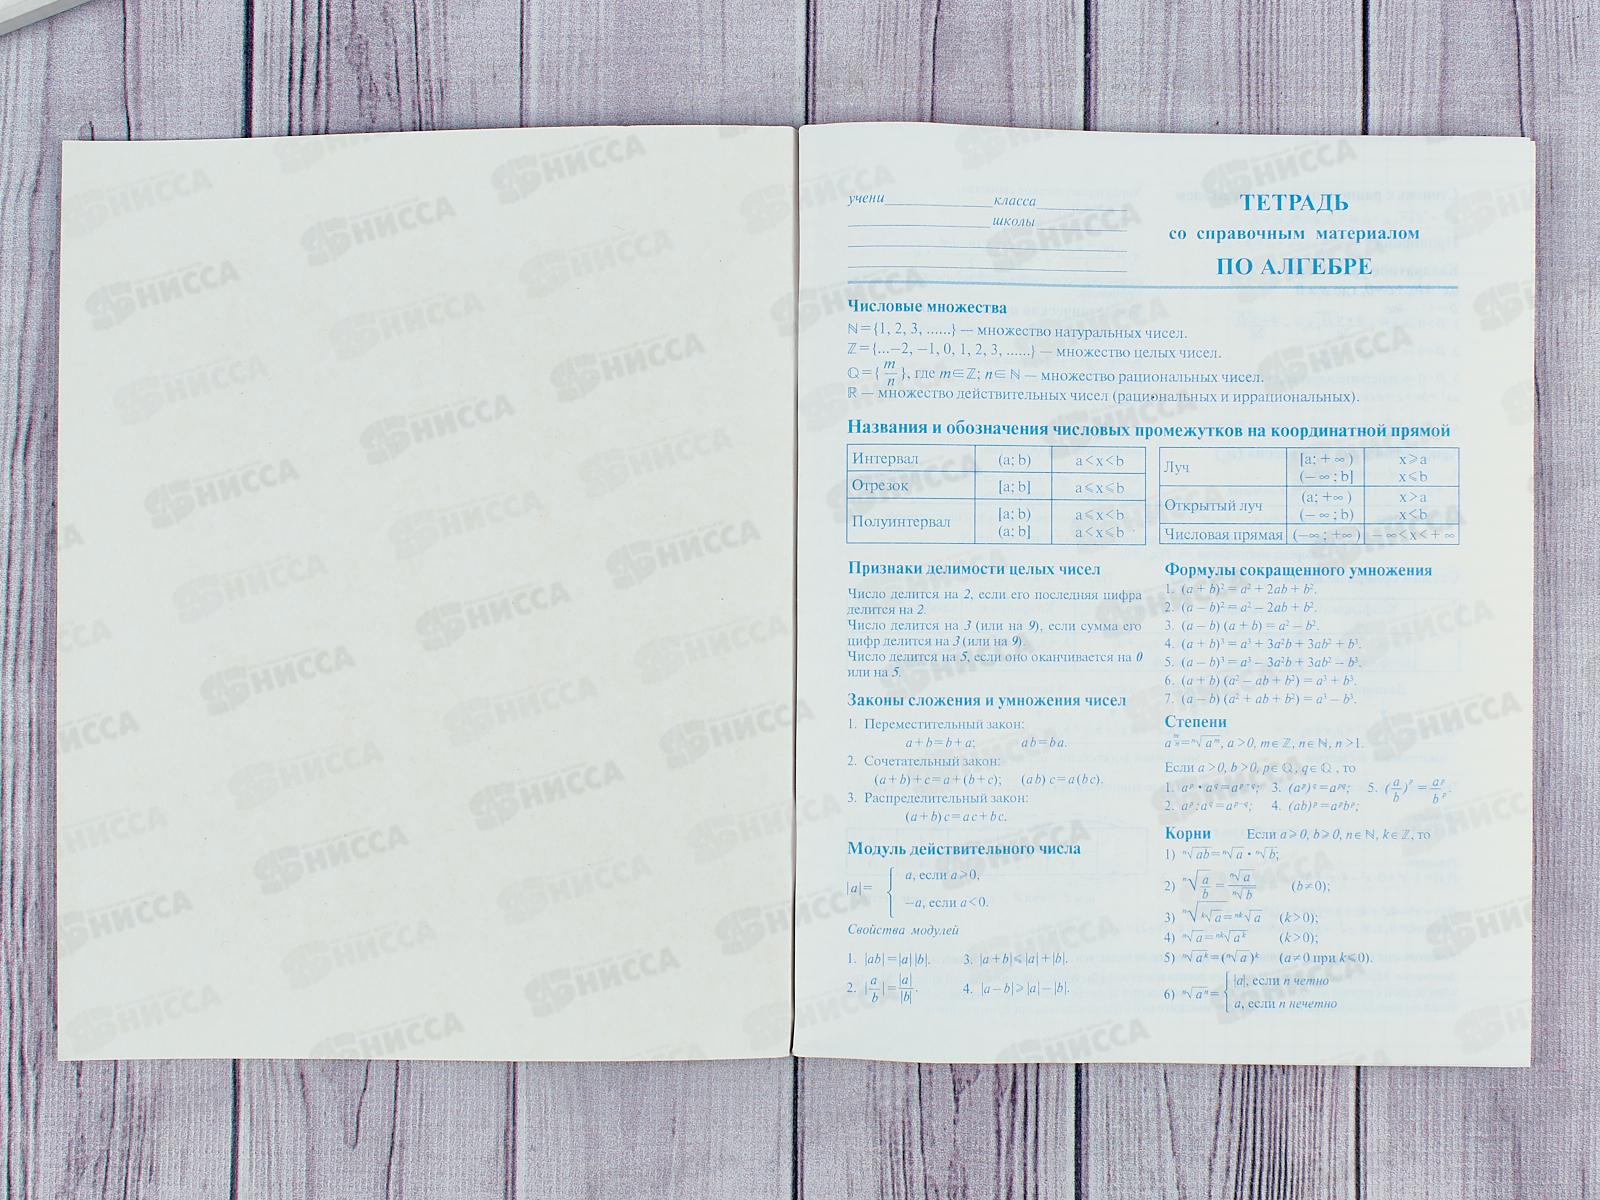 учени класса
школы
ТЕТРАДЬ
со справочным материалом
ПО АЛГЕБРЕ
Числовые множества
ℕ={1, 2, 3, ......} — множество натуральных чисел.
ℤ={...−2, −1, 0, 1, 2, 3, ......} — множество целых чисел.
ℚ={ m/n }, где m∈ℤ; n∈ℕ — множество рациональных чисел.
ℝ — множество действительных чисел (рациональных и иррациональных).
Названия и обозначения числовых промежутков на координатной прямой
Интервал (a; b) a<x<b
Отрезок [a; b] a⩽x⩽b
Полуинтервал [a; b) a⩽x<b
(a; b] a<x⩽b
Луч [a; +∞) x⩾a
(−∞; b] x⩽b
Открытый луч (a; +∞) x>a
(−∞; b) x<b
Числовая прямая (−∞; +∞) −∞<x<+∞
Признаки делимости целых чисел
Число делится на 2, если его последняя цифра
делится на 2.
Число делится на 3 (или на 9), если сумма его
цифр делится на 3 (или на 9).
Число делится на 5, если оно оканчивается на 0
или на 5.
Законы сложения и умножения чисел
1. Переместительный закон:
a+b=b+a; ab=ba.
2. Сочетательный закон:
(a+b)+c=a+(b+c); (ab)c=a(bc).
3. Распределительный закон:
(a+b)c=ac+bc.
Модуль действительного числа
|a|= { a, если a⩾0,
−a, если a<0.
Свойства модулей
1. |ab|=|a||b|. 3. |a+b|⩽|a|+|b|.
2. |a/b|=|a|/|b|. 4. |a−b|⩾|a|−|b|.
Формулы сокращенного умножения
1. (a + b)² = a² + 2ab + b².
2. (a − b)² = a² − 2ab + b².
3. (a − b) (a + b) = a² − b².
4. (a + b)³ = a³ + 3a²b + 3ab² + b³.
5. (a − b)³ = a³ − 3a²b + 3ab² − b³.
6. (a + b) (a² − ab + b²) = a³ + b³.
7. (a − b) (a² + ab + b²) = a³ − b³.
Степени
a^(m/n)=ⁿ√(a^m), a>0, m∈ℤ, n∈ℕ, n>1.
Если a>0, b>0, p∈ℚ, q∈ℚ, то
1. a^p • a^q=a^(p+q); 3. (a^p)^q=a^(pq); 5. (a/b)^p = a^p/b^p.
2. a^p : a^q=a^(p−q); 4. (ab)^p=a^p b^p;
Корни Если a⩾0, b⩾0, n∈ℕ, k∈ℤ, то
1) ⁿ√(ab)=ⁿ√a • ⁿ√b;
2) ⁿ√(a/b)=ⁿ√a/ⁿ√b (b≠0);
3) ⁿ√(ᵏ√a)=ⁿᵏ√a (k>0);
4) ⁿ√a=ⁿᵏ√(a^k) (k>0);
5) ⁿ√(a^k)=(ⁿ√a)^k (a≠0 при k⩽0).
6) ⁿ√(aⁿ)= { |a|, если n четно
a, если n нечетно
НИССА